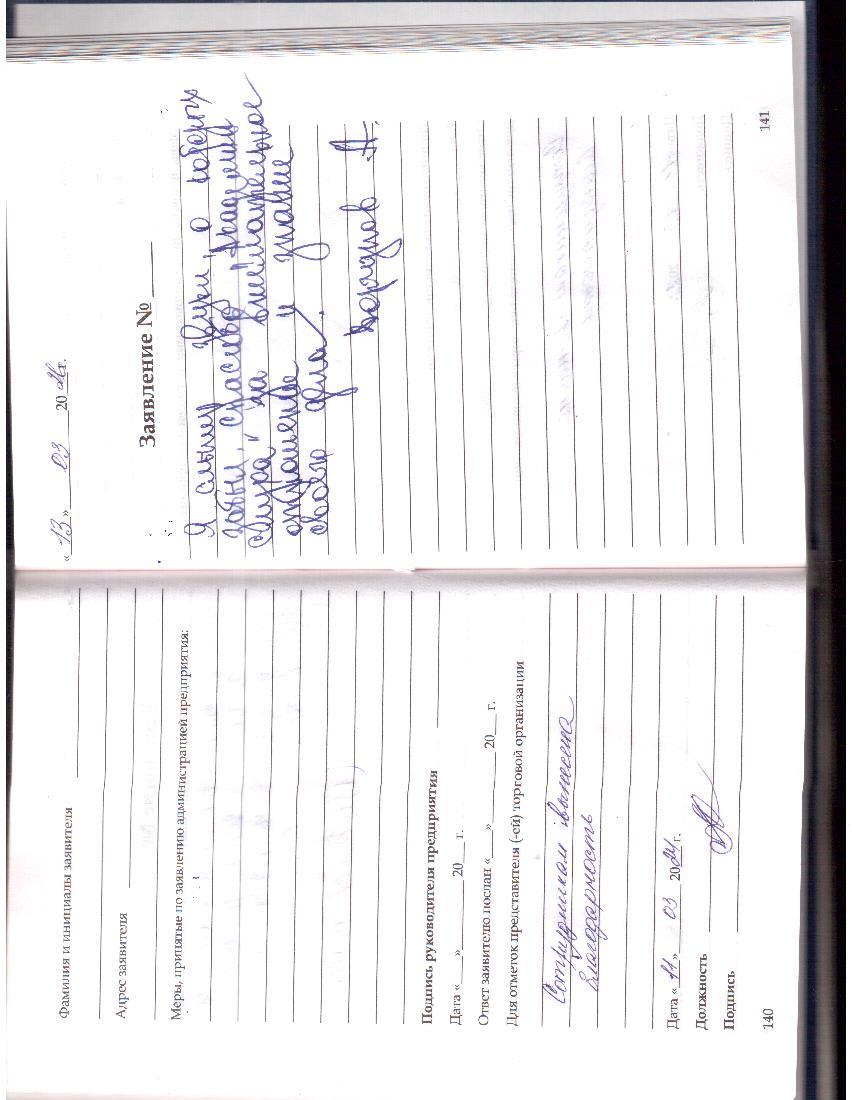 Фамилия и инициалы заявителя
Адрес заявителя
Меры, принятые по заявлению администрацией предприятия:
Подпись руководителя предприятия
Дата «___» ______ 20__ г.
Ответ заявителю послан «___» ______ 20__ г.
Для отметок представителя (-ей) торговой организации
Сотрудникам вынесена
благодарность
Дата «11» 03 2024 г.
Должность
Подпись
140
«13» 03 2024г.
Заявление № ___
Я слышу звуки, о которых
забыл, спасибо "Академии
слуха" за внимательное
отношение и знание
своего дела.
А.
141